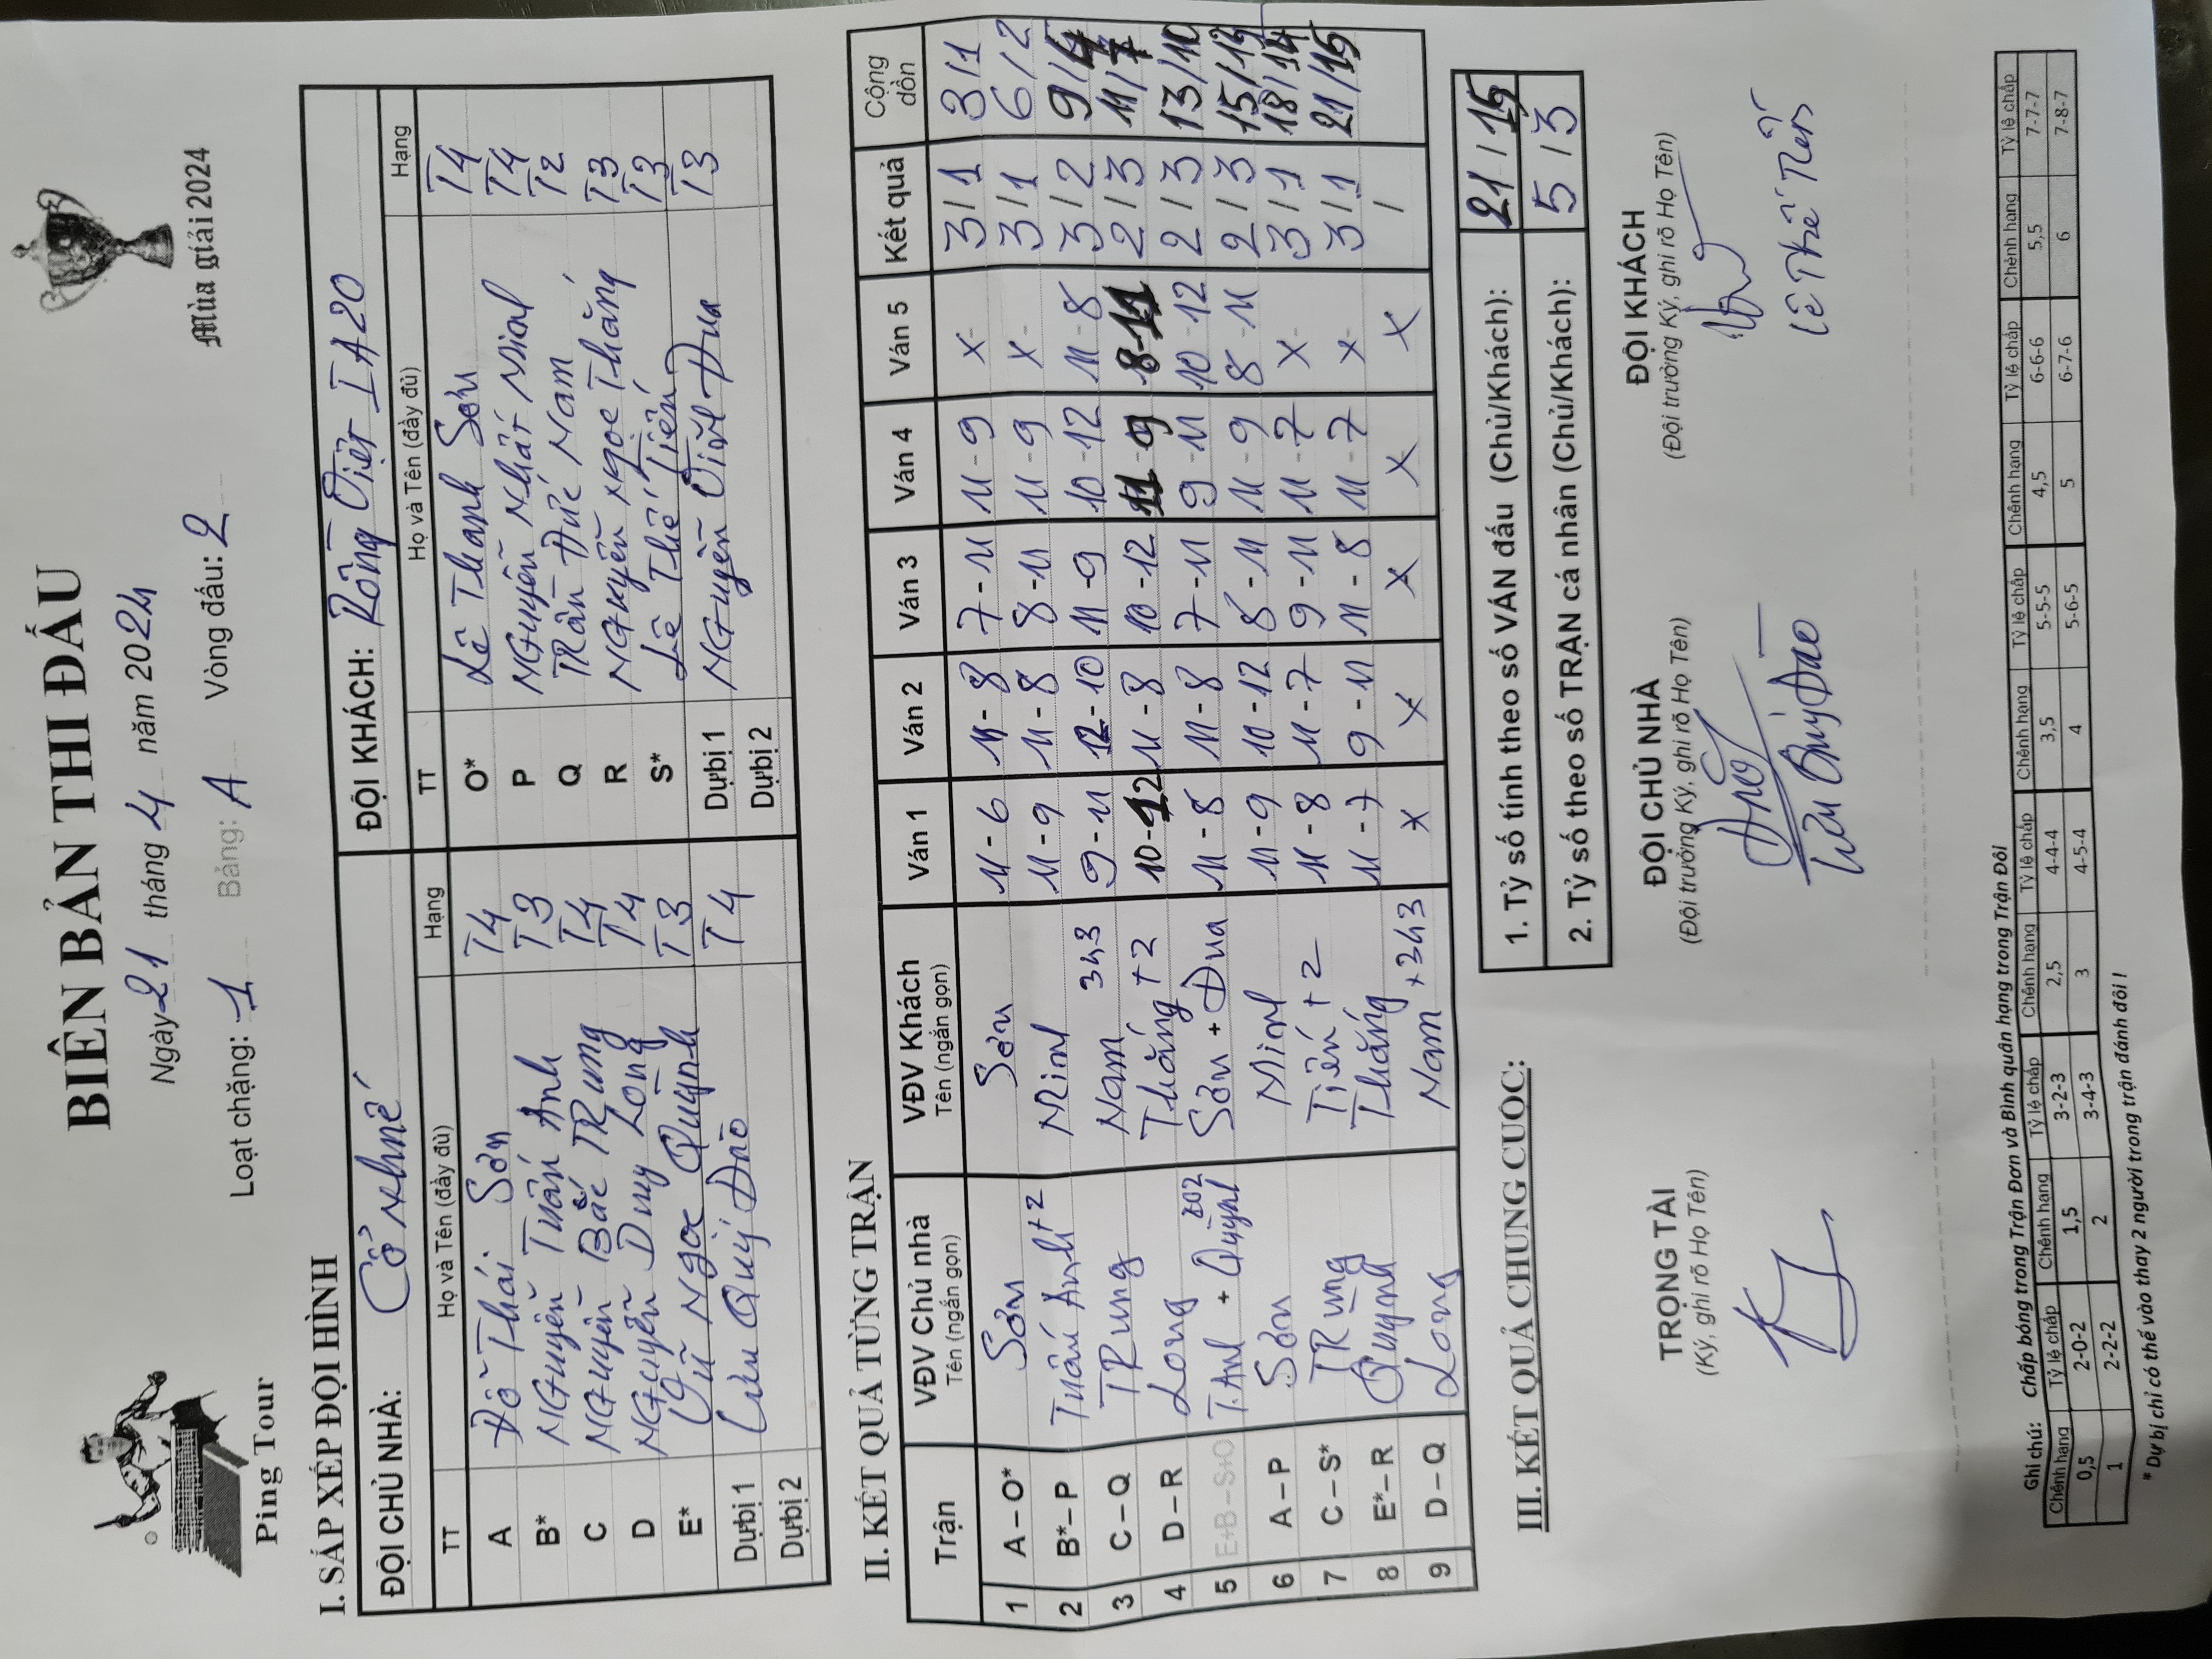 Ping Tour
BIÊN BẢN THI ĐẤU
Ngày 21 tháng 4 năm 2024
Loạt chặng: 1 Bảng: A Vòng đấu: 2
Mùa giải 2024
I. SẮP XẾP ĐỘI HÌNH
ĐỘI CHỦ NHÀ: Cổ Nhuế ĐỘI KHÁCH: Rồng Việt IA20
TT Họ và Tên (đầy đủ) Hạng TT Họ và Tên (đầy đủ) Hạng
A Đỗ Thái Sơn T4 O* Lê Thanh Sơn T4
B* Nguyễn Tuấn Anh T3 P Nguyễn Nhất Minh T4
C Nguyễn Bắc Trung T4 Q Trần Đức Nam T2
D Nguyễn Duy Long T4 R Nguyễn Ngọc Thắng T3
E* Vũ Ngọc Quỳnh T3 S* Lê Thế Tiến T3
Dự bị 1 Lưu Quý Đào T4 Dự bị 1 Nguyễn Đình Đua T3
Dự bị 2 Dự bị 2
II. KẾT QUẢ TỪNG TRẬN
Trận VĐV Chủ nhà Tên (ngắn gọn) VĐV Khách Tên (ngắn gọn) Ván 1 Ván 2 Ván 3 Ván 4 Ván 5 Kết quả Cộng dồn
1 A – O* Sơn Sơn 11 - 6 11 - 8 7 - 11 11 - 9 X 3 / 1 3 / 1
2 B* – P Tuấn Anh + 2 Minh 11 - 9 11 - 8 8 - 11 11 - 9 X 3 / 1 6 / 2
3 C – Q Trung Nam 343 9 - 11 12 - 10 11 - 9 10 - 12 11 - 8 3 / 2 9 / 4
4 D – R Long Thắng + 2 10 - 12 11 - 8 10 - 12 11 - 9 8 - 11 2 / 3 11 / 7
5 E+B – S+O T.Anh + Quỳnh 202 Sơn + Đua 11 - 8 11 - 8 7 - 11 9 - 11 10 - 12 2 / 3 13 / 10
6 A – P Sơn Minh 11 - 9 10 - 12 8 - 11 11 - 9 8 - 11 2 / 3 15 / 13
7 C – S* Trung Tiến + 2 11 - 8 11 - 7 9 - 11 11 - 7 X 3 / 1 18 / 14
8 E* – R Quỳnh Thắng 11 - 7 9 - 11 11 - 8 11 - 7 X 3 / 1 21 / 15
9 D – Q Long Nam + 343 X X X X X /
III. KẾT QUẢ CHUNG CUỘC:
1. Tỷ số tính theo số VÁN đấu (Chủ/Khách): 21 / 15
2. Tỷ số theo số TRẬN cá nhân (Chủ/Khách): 5 / 3
TRỌNG TÀI ĐỘI CHỦ NHÀ ĐỘI KHÁCH
(Ký, ghi rõ Họ Tên) (Đội trưởng Ký, ghi rõ Họ Tên) (Đội trưởng Ký, ghi rõ Họ Tên)
Lưu Quý Đào Lê Thế Tiến
Ghi chú: Chấp bóng trong Trận Đơn và Bình quân hạng trong Trận Đôi
Chênh hạng Tỷ lệ chấp Chênh hạng Tỷ lệ chấp Chênh hạng Tỷ lệ chấp Chênh hạng Tỷ lệ chấp Chênh hạng Tỷ lệ chấp Chênh hạng Tỷ lệ chấp
0,5 2-0-2 1,5 3-2-3 2,5 4-4-4 3,5 5-5-5 4,5 6-6-6 5,5 7-7-7
1 2-2-2 2 3-4-3 3 4-5-4 4 5-6-5 5 6-7-6 6 7-8-7
* Dự bị chỉ có thể vào thay 2 người trong trận đánh đôi !